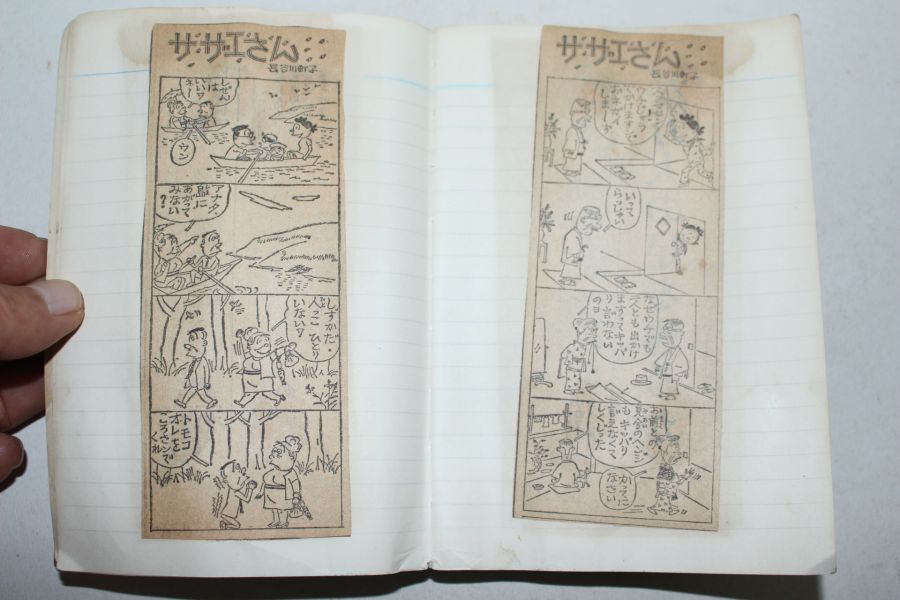 サザエさん
長谷川町子
しぜん
は
いいワ
ネー
ウン
アナタ、
島に
あがって
みない
?
しずかだ。
人っこ ひとり
いないワ
トモコ
オレを
ころさンで
くれ
サザエさん
長谷川町子
おネガイ
しまーす
いって
らっしゃい
なぜウチでも
二人とも出かけ
ますってキッパ
リ言わない
の
お前との
見合のヘンジ
もキッパリ
言えなくて
しくじった
かってに
なさい